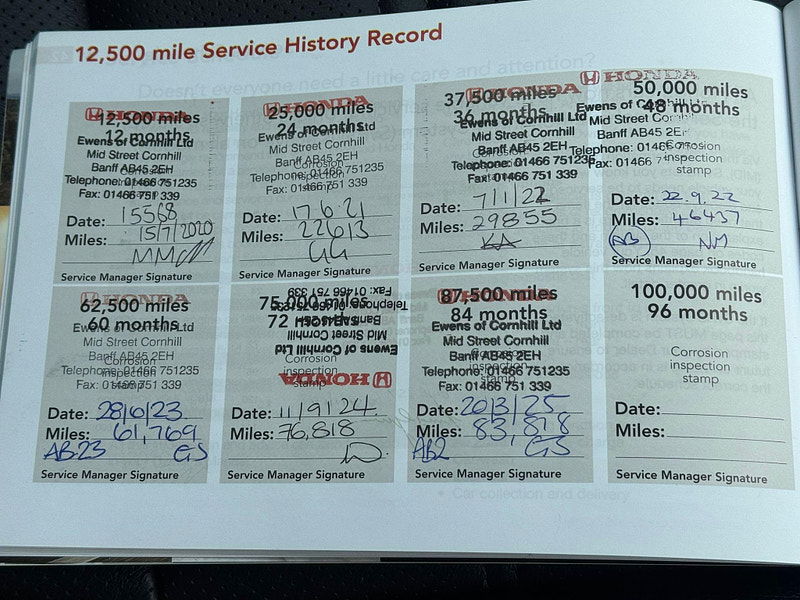 12,500 mile Service History Record
Doesn't everyone need a little care and attention?
HONDA
12,500 miles
12 months
Ewens of Cornhill Ltd
Mid Street Cornhill
Banff AB45 2EH
Telephone: 01466 751235
Fax: 01466 751 339
Date: 15568
Miles: 15/7/2020
Service Manager Signature
HONDA
25,000 miles
24 months
Ewens of Cornhill Ltd
Mid Street Cornhill
Banff AB45 2EH
Corrosion
Telephone: 01466 751235
Fax: 01466 751 339
Date: 17.6.21
Miles: 22613
GG
Service Manager Signature
HONDA
37,500 miles
36 months
Ewens of Cornhill Ltd
Mid Street Cornhill
Banff AB45 2EH
Telephone: 01466 751235
Fax: 01466 751 339
Date: 7/1/22
Miles: 29855
KA
Service Manager Signature
HONDA
50,000 miles
48 months
Ewens of Cornhill
Mid Street Cornhill
Banff AB45 2E
Corrosion
Telephone: 01466
inspection
Fax: 01466
stamp
Date: 22.9.22
Miles: 46437
AB NM
Service Manager Signature
HONDA
62,500 miles
60 months
Ewens of Cornhill Ltd
Mid Street Cornhill
Banff AB45 2EH
Corrosion
Telephone: 01466 751235
Fax: 01466 751 339
Date: 28/6/23
Miles: 61,769
AB23 GS
Service Manager Signature
75,000 miles
72
Fax: 01466 751 339
Telephone
Mid Street Cornhill
Ewens of Cornhill Ltd
Corrosion
inspection
stamp
HONDA
Date: 11/9/24
Miles: 76,818
Service Manager Signature
HONDA
87,500 miles
84 months
Ewens of Cornhill Ltd
Mid Street Cornhill
Banff AB45 2EH
Telephone: 01466 751235
Fax: 01466 751 339
stamp
Date: 20/3/25
Miles: 83,878
AB2 GS
Service Manager Signature
100,000 miles
96 months
Corrosion
inspection
stamp
Date:
Miles:
Service Manager Signature
• Car collection and delivery